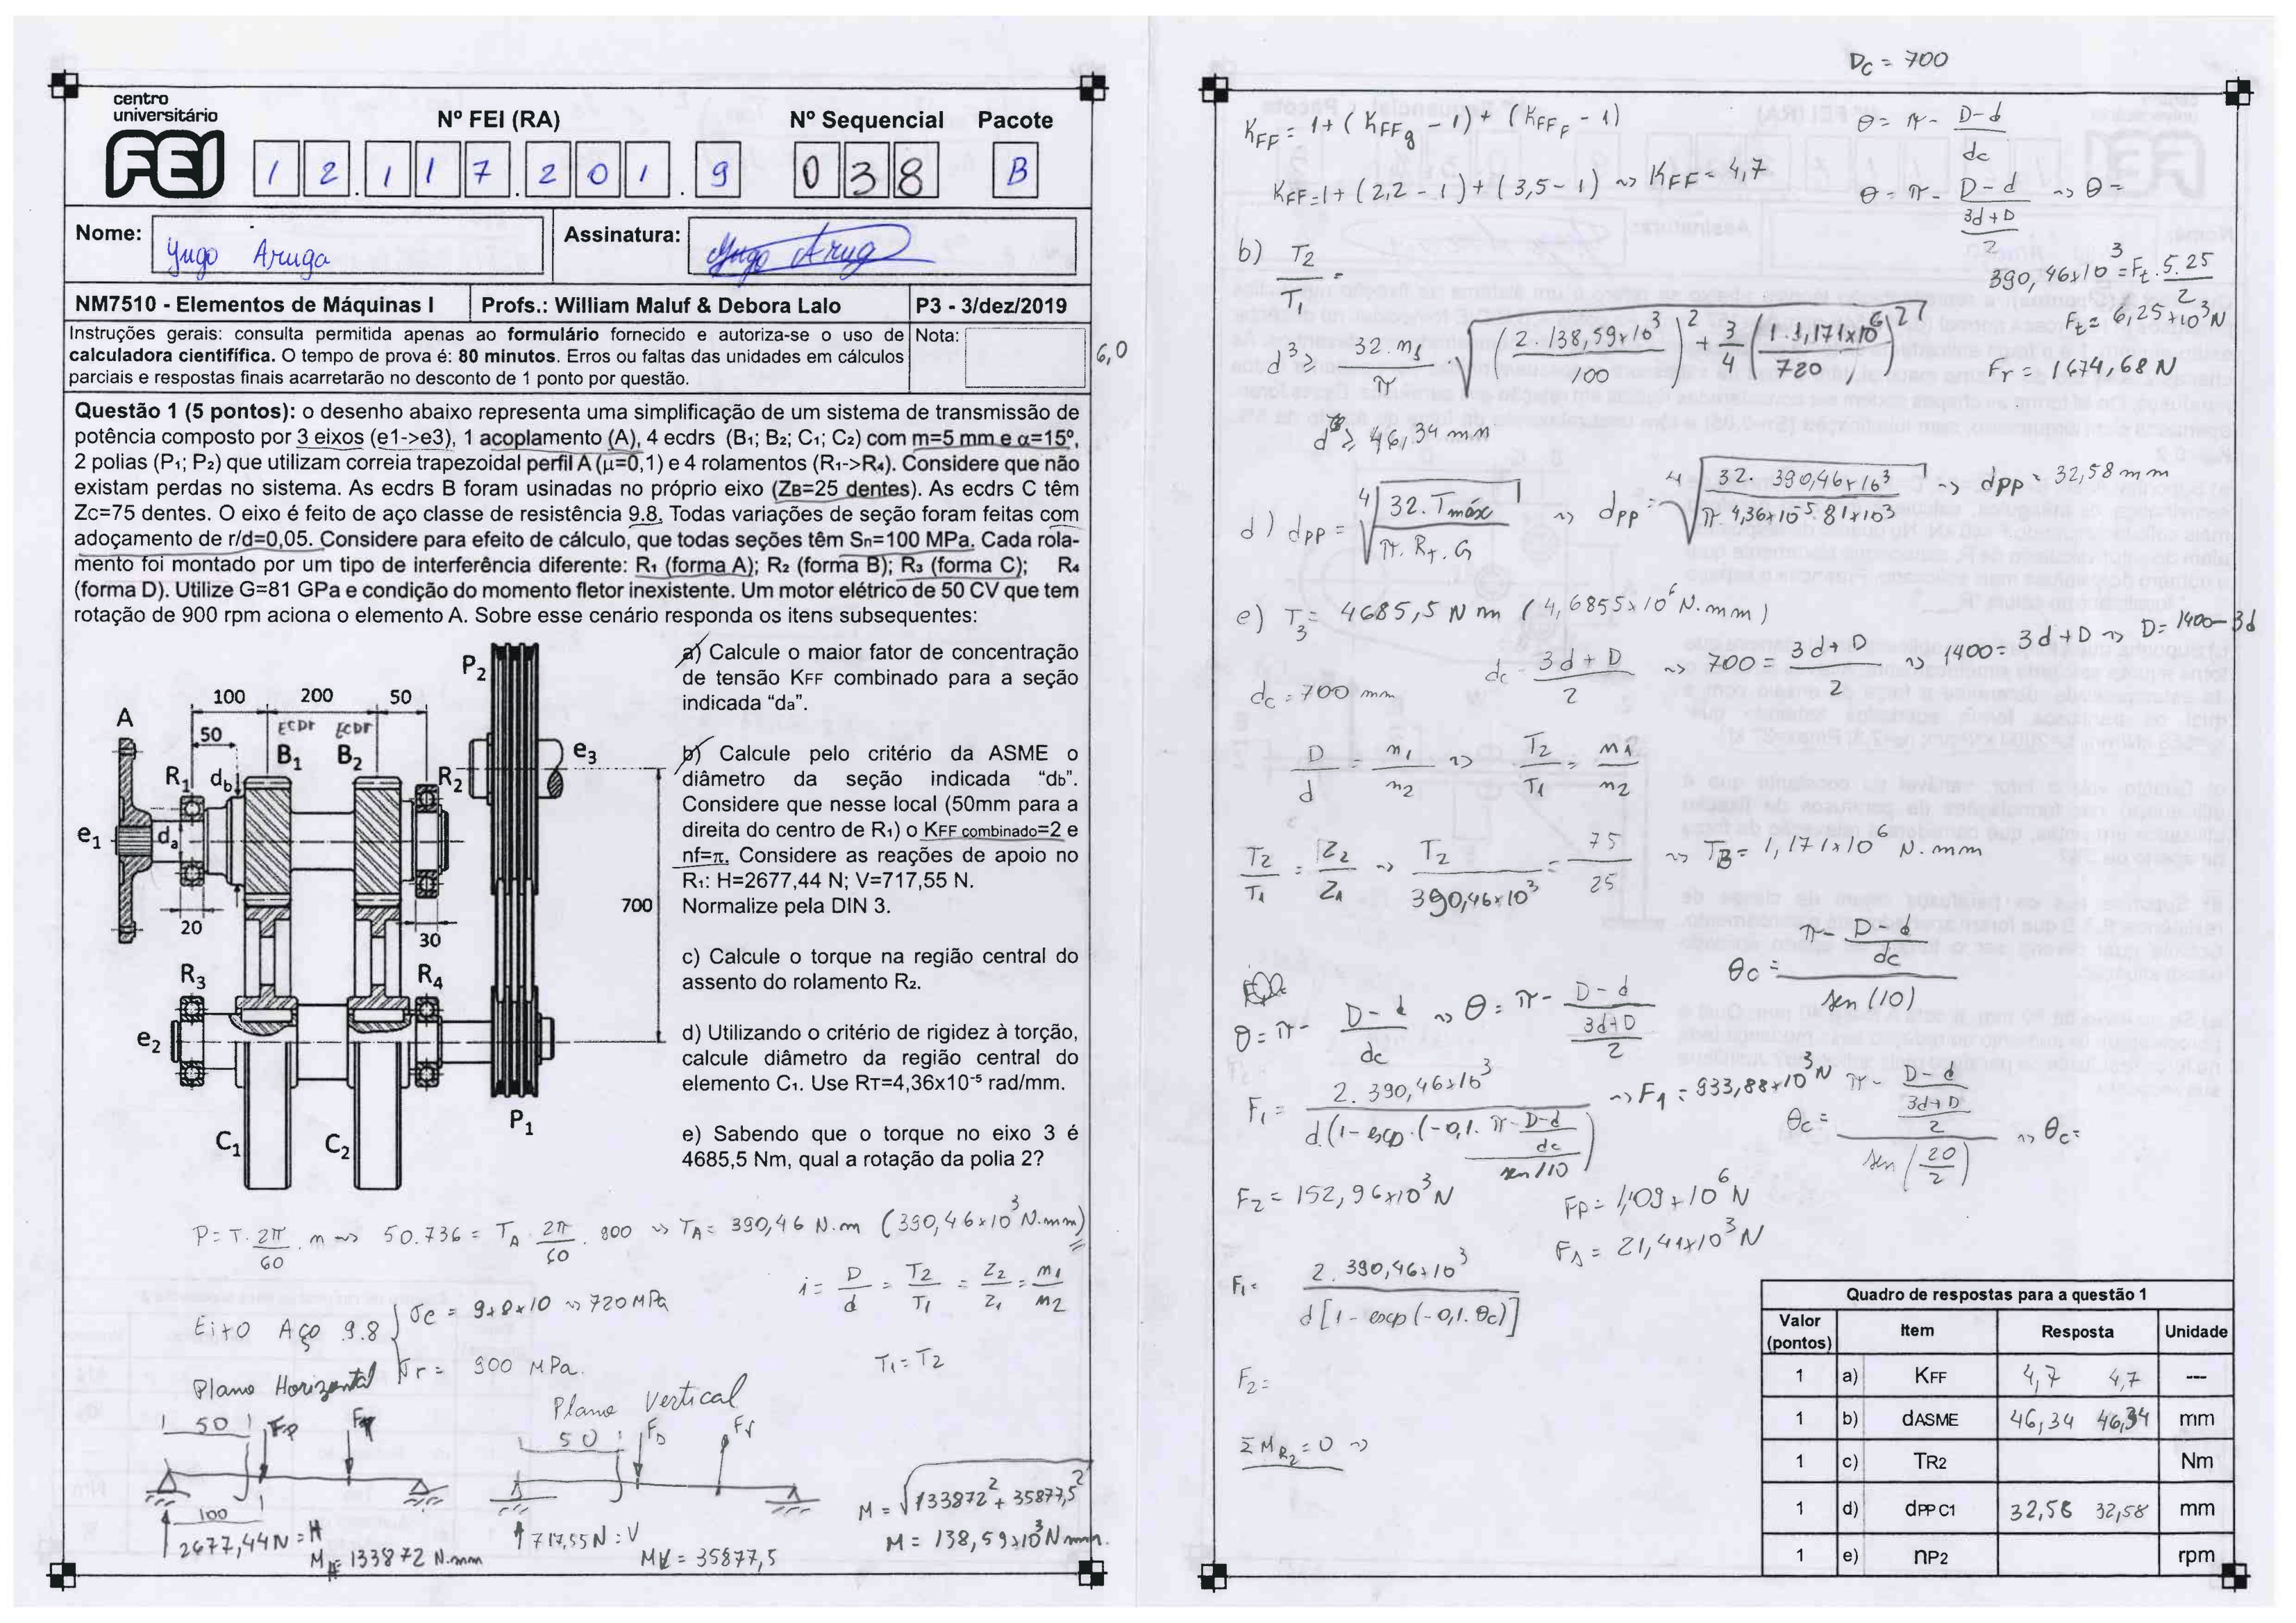 centro
universitário
FEI
Nº FEI (RA)
Nº Sequencial
Pacote
1 2 . 1 1 7 . 2 0 1 . 9
0 3 8
B
Nome: Yugo Aruga
Assinatura: Yugo Aruga
NM7510 - Elementos de Máquinas I
Profs.: William Maluf & Debora Lalo
P3 - 3/dez/2019
Instruções gerais: consulta permitida apenas ao formulário fornecido e autoriza-se o uso de
calculadora cientifífica. O tempo de prova é: 80 minutos. Erros ou faltas das unidades em cálculos
parciais e respostas finais acarretarão no desconto de 1 ponto por questão.
Nota:
6,0
Questão 1 (5 pontos): o desenho abaixo representa uma simplificação de um sistema de transmissão de
potência composto por 3 eixos (e1->e3), 1 acoplamento (A), 4 ecdrs (B1; B2; C1; C2) com m=5 mm e α=15º,
2 polias (P1; P2) que utilizam correia trapezoidal perfil A (μ=0,1) e 4 rolamentos (R1->R4). Considere que não
existam perdas no sistema. As ecdrs B foram usinadas no próprio eixo (ZB=25 dentes). As ecdrs C têm
Zc=75 dentes. O eixo é feito de aço classe de resistência 9.8. Todas variações de seção foram feitas com
adoçamento de r/d=0,05. Considere para efeito de cálculo, que todas seções têm Sn=100 MPa. Cada rola-
mento foi montado por um tipo de interferência diferente: R1 (forma A); R2 (forma B); R3 (forma C); R4
(forma D). Utilize G=81 GPa e condição do momento fletor inexistente. Um motor elétrico de 50 CV que tem
rotação de 900 rpm aciona o elemento A. Sobre esse cenário responda os itens subsequentes:
P2
100 200 50
A
ECDr ECDr
50
B1 B2
R1 db
R2
e3
e1
da
20
30
700
R3
R4
e2
P1
C1
C2
a) Calcule o maior fator de concentração
de tensão KFF combinado para a seção
indicada “da”.
b) Calcule pelo critério da ASME o
diâmetro da seção indicada “db”.
Considere que nesse local (50mm para a
direita do centro de R1) o KFF combinado=2 e
nf=π. Considere as reações de apoio no
R1: H=2677,44 N; V=717,55 N.
Normalize pela DIN 3.
c) Calcule o torque na região central do
assento do rolamento R2.
d) Utilizando o critério de rigidez à torção,
calcule diâmetro da região central do
elemento C1. Use RT=4,36x10-5 rad/mm.
e) Sabendo que o torque no eixo 3 é
4685,5 Nm, qual a rotação da polia 2?
P= T. 2π/60 . n ~> 50.736 = TA . 2π/60 . 900 ~> TA= 390,46 N.m (390,46x10³ N.mm)
i = D/d = T2/T1 = Z2/Z1 = n1/n2
Eixo Aço 9.8
σe = 9x8x10 ~> 720 MPa
σr = 900 MPa.
T1 = T2
Plano Horizontal
50
100
2677,44N = H
MH= 133872 N.mm
Plano Vertical
50
717,55 N : V
MV = 35877,5
M = √133872² + 35877,5²
M = 138,59x10³ N mm.
Dc = 700
KFF = 1+ (KFFg - 1) + (KFFF - 1)
KFF=1+ (2,2 - 1) + (3,5 - 1) ~> KFF = 4,7
θ = π - D-d/dc
θ = π - D-d/(3d+D/2) ~> θ =
b) T2/T1 =
390,46x10³ = Ft . 5.25/2
Ft = 6,25x10³ N
Fr = 1674,68 N
d³ ≥ 32. nf/π . √(2. 138,59x10³/100)² + 3/4 (1. 1,171x10⁶/720)²
d ≥ 46,34 mm
d) dpp = ⁴√32. Tmáx/π. Rt. G ~> dpp = ⁴√32. 390,46x10³/π. 4,36x10⁻⁵. 81x10³ ~> dpp = 32,58 mm
e) T3 = 4685,5 N m (4,6855x10⁶ N.mm)
dc = 700 mm
dc = 3d + D/2 ~> 700 = 3d + D/2 ~> 1400 = 3d + D ~> D= 1400-3d
D/d = n1/n2 ~> T2/T1 = n1/n2
T2/T1 = Z2/Z1 ~> T2/390,46x10³ = 75/25 ~> TB = 1,171x10⁶ N.mm
θc = π - D-d/dc / sen(10)
θ = π - D-d/dc ~> θ = π - D-d/(3d+D/2)
F1 = 2. 390,46x10³/d.(1-exp.(-0,1. π- D-d/dc / sen 10) ~> F1 = 933,88x10³ N
θc = π - D-d/(3d+D/2) / sen(20/2) ~> θc =
F2 = 152,96x10³ N
Fp = 1,09x10⁶ N
Fs = 21,41x10³ N
F1 = 2. 390,46x10³/d[1-exp(-0,1. θc)]
F2 =
Σ MR2 = 0 ~>
Quadro de respostas para a questão 1
Valor (pontos) Item Resposta Unidade
1 a) KFF 4,7 4,7 ---
1 b) dASME 46,34 46,34 mm
1 c) TR2 Nm
1 d) dPP C1 32,58 32,58 mm
1 e) nP2 rpm